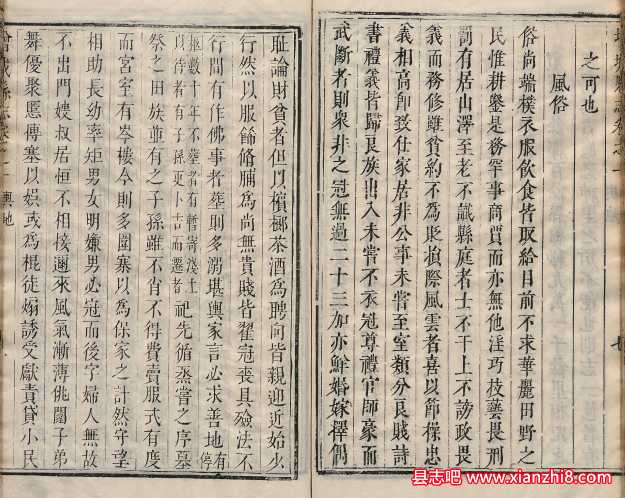 之可也
風俗
俗尚端樸衣服飲食皆取給目前不求華麗田野之
民惟耕鑿是務罕事商賈而亦無他淫巧技藝畏刑
罰有居山澤至老不識縣庭者士不干上不謗政畏
義而務修雖貧約不為貶損際風雲者喜以節操忠
義相高卽致仕家居非公事未嘗至室類分良賤詩
書禮義皆歸良族出入未嘗不衣冠尊禮官師豪而
武斷者則衆非之冠無過二十三加亦鮮婚嫁擇偶
恥論財貧者但以檳榔茶酒為聘向皆親迎近始少
行然以服飾脩脯為尚無貴賤皆翟冠喪具殮法不
行間有作佛事者葬則多溺堪輿家言必求善地有停
柩數十年不葬者有暫寄淺土
以待葬者有子孫更卜吉而遷者祀先循烝嘗之序墓
祭之田族蕞有之子孫雖不肖不得費賣服式有度
而宮室有岑樓今則多圍寨以為保家之計然守望
相助長幼率矩男女明嫌男必冠而後字婦人無故
不出門嫂叔居恒不相接邇來風氣漸薄佻闥子弟
舞優聚慝傳塞以娛或為棍徒煽誘受獻責貸小民
增城縣志卷之一 輿地
县志吧 www.xianzhi8.com